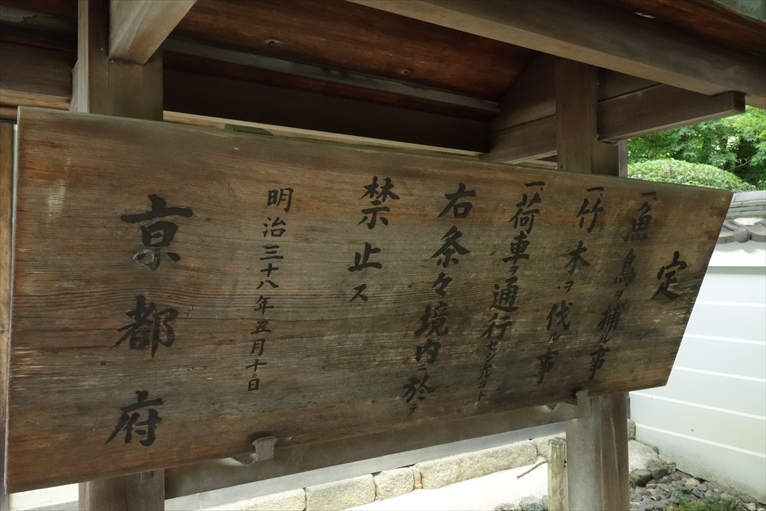 定
一、魚鳥ヲ捕ル事
一、竹木ヲ伐ル事
一、荷車ヲ通行セシムルコト
右条々境内ニ於テ
禁止ス
明治三十八年五月十日
京都府